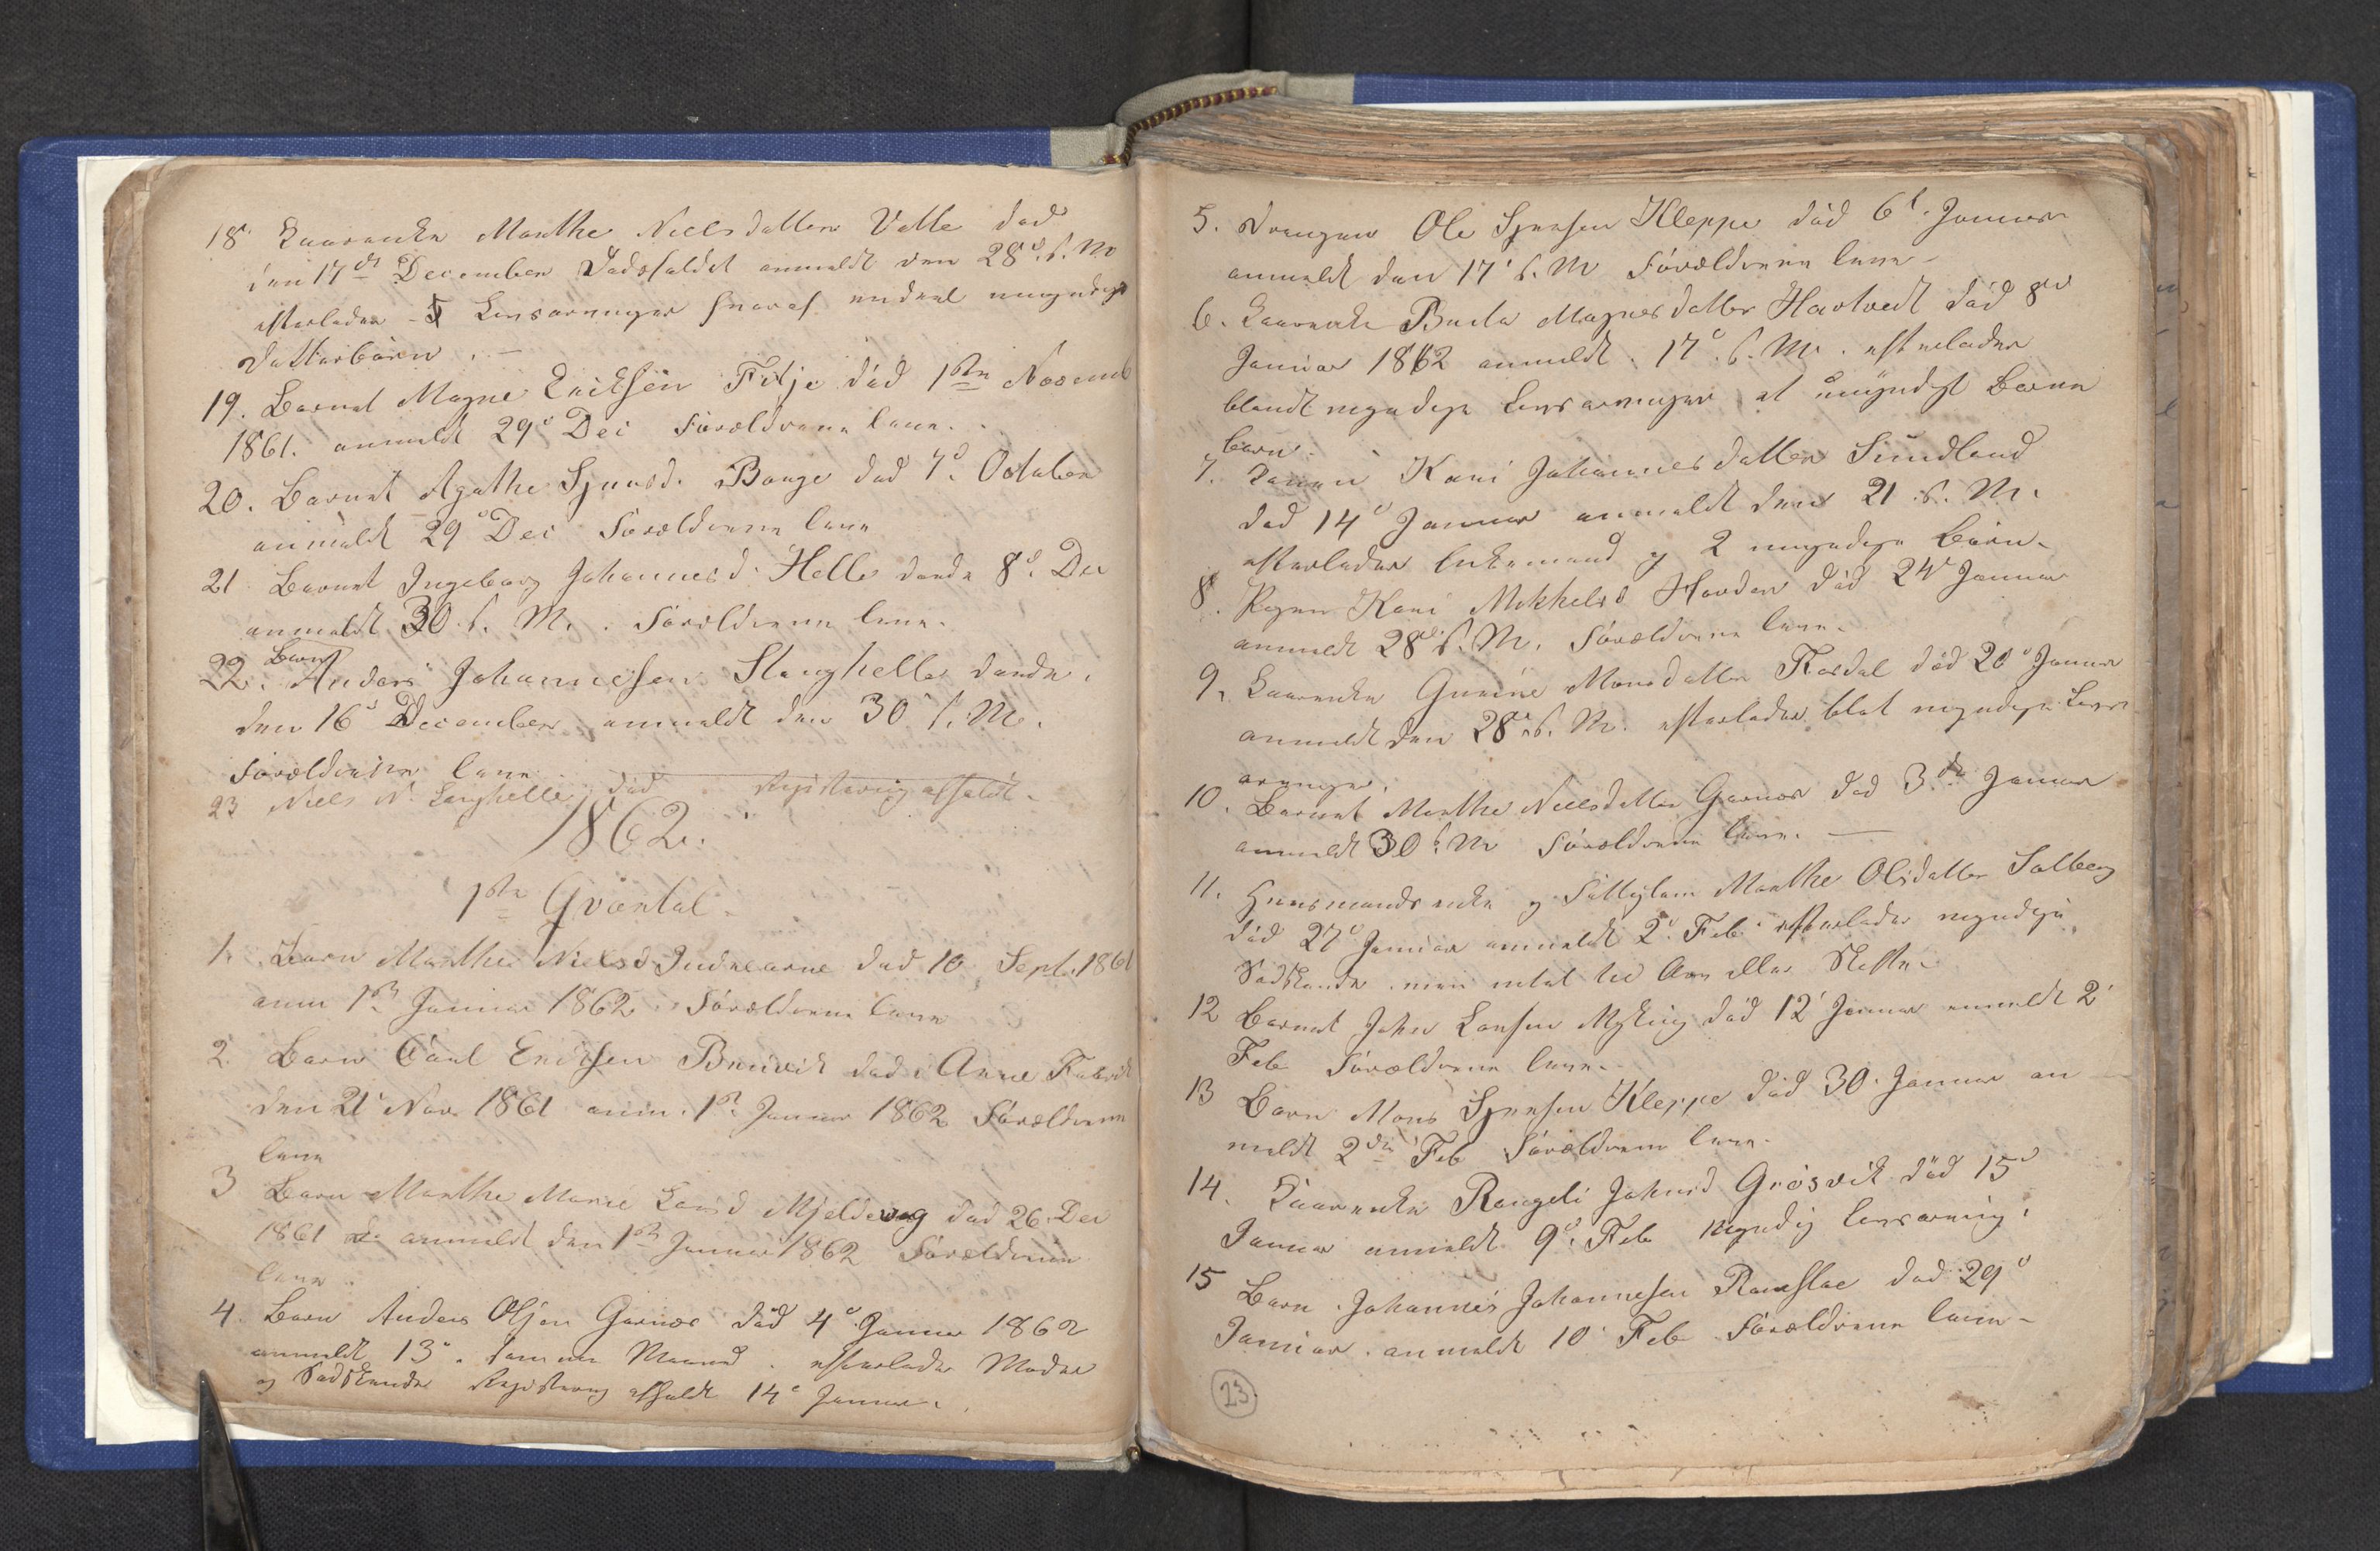 18. Kaarenke Marthe Nielsdatter Valle død
den 17de December Dødsfaldet anmeldt den 28d. s. M
efterlader 5 Livsarvinger hvoraf endeel umyndige
Datterbørn. —
19. Barnet Magne Eriksen Fitje død 1ste Novemb
1861. anmeldt 29d Dec Forældrene leve.
20. Barnet Agathe Sjursd. Bauge død 7d. October
anmeldt 29d Dec Forældrene leve
21 Barnet Ingeborg Johannesd. Helle døde 8d. Dec
anmeldt 30 s. M. Forældrene leve.
22. Barnet Anders Johannesen Stanghelle døde
den 16d December anmeldt den 30 s. M.
Forældrene leve
23 Niels N. Langhelle død Registrering afholdt.
1862.
1ste Qvartal.
1. Barn Marthe Nielsd Indrearne død 10 Sept. 1861
anm 1ste Januar 1862 Forældrene leve
2. Barn Carl Ericksen Bruvik død i Arne Fabrik
den 21d Nov 1861 anm. 1ste Januar 1862 Forældrene
leve
3 Barn Marthe Marie Larsd Mjeldevog død 26. Dec
1861 anmeldt den 1ste Januar 1862 Forældrene
leve.
4. Barn Anders Olsen Garnæs død 4d Januar 1862
anmeldt 13d. samme Maaned. efterlader Moder
og Sødskende Registrering afholdt 14d Januar.
5. Drengen Ole Sjursen Kleppe død 6d. Januar
anmeldt den 17d s. M Forældrene leve.
6. Kaarenke Magnesdatter Havtvedt død 8d
Januar 1862 anmeldt 17d. s. M. efterlader
blandt myndige Livsarvinger et umyndigt Barne
barn.
7. Konen Kari Johannesdatter Sundland
død 14d Januar anmeldt den 21. s. M.
efterlader Enkemand og 2 umyndige Børn.
8. Pigen Kari Mikkelsd Havden død 24d Januar
anmeldt 28d s. M. Forældrene leve.
9. Kaarenke Gurine Monsdatter Rosdal død 20d Januar
anmeldt den 28d s. M. efterlader blot myndige Livs
arvinger.
10. Barnet Marthe Nielsdatter Garnæs død 3die Januar
anmeldt 30 s. M Forældrene leve. —
11. Huusmandsenke og Fattiglem Marthe Olsdatter Solberg
død 27d Januar anmeldt 2d. Feb. efterlader myndige
Sødskende men intet til Arv eller Skifte.
12 Barnet Johan Larsen Myking død 12d Januar anmeldt 2d
Feb Forældrene leve.
13 Barn Mons Sjursen Kleppe død 30. Januar an
meldt 2den Feb Forældrene leve.
14. Kaarenke Rangeli Johnsd Grøsvik død 15d
Januar anmeldt 9d. Feb myndig Livsarving.
15 Barn Johannes Johannesen Romsloe død 29d
Januar anmeldt 10 Feb Forældrene leve.
23